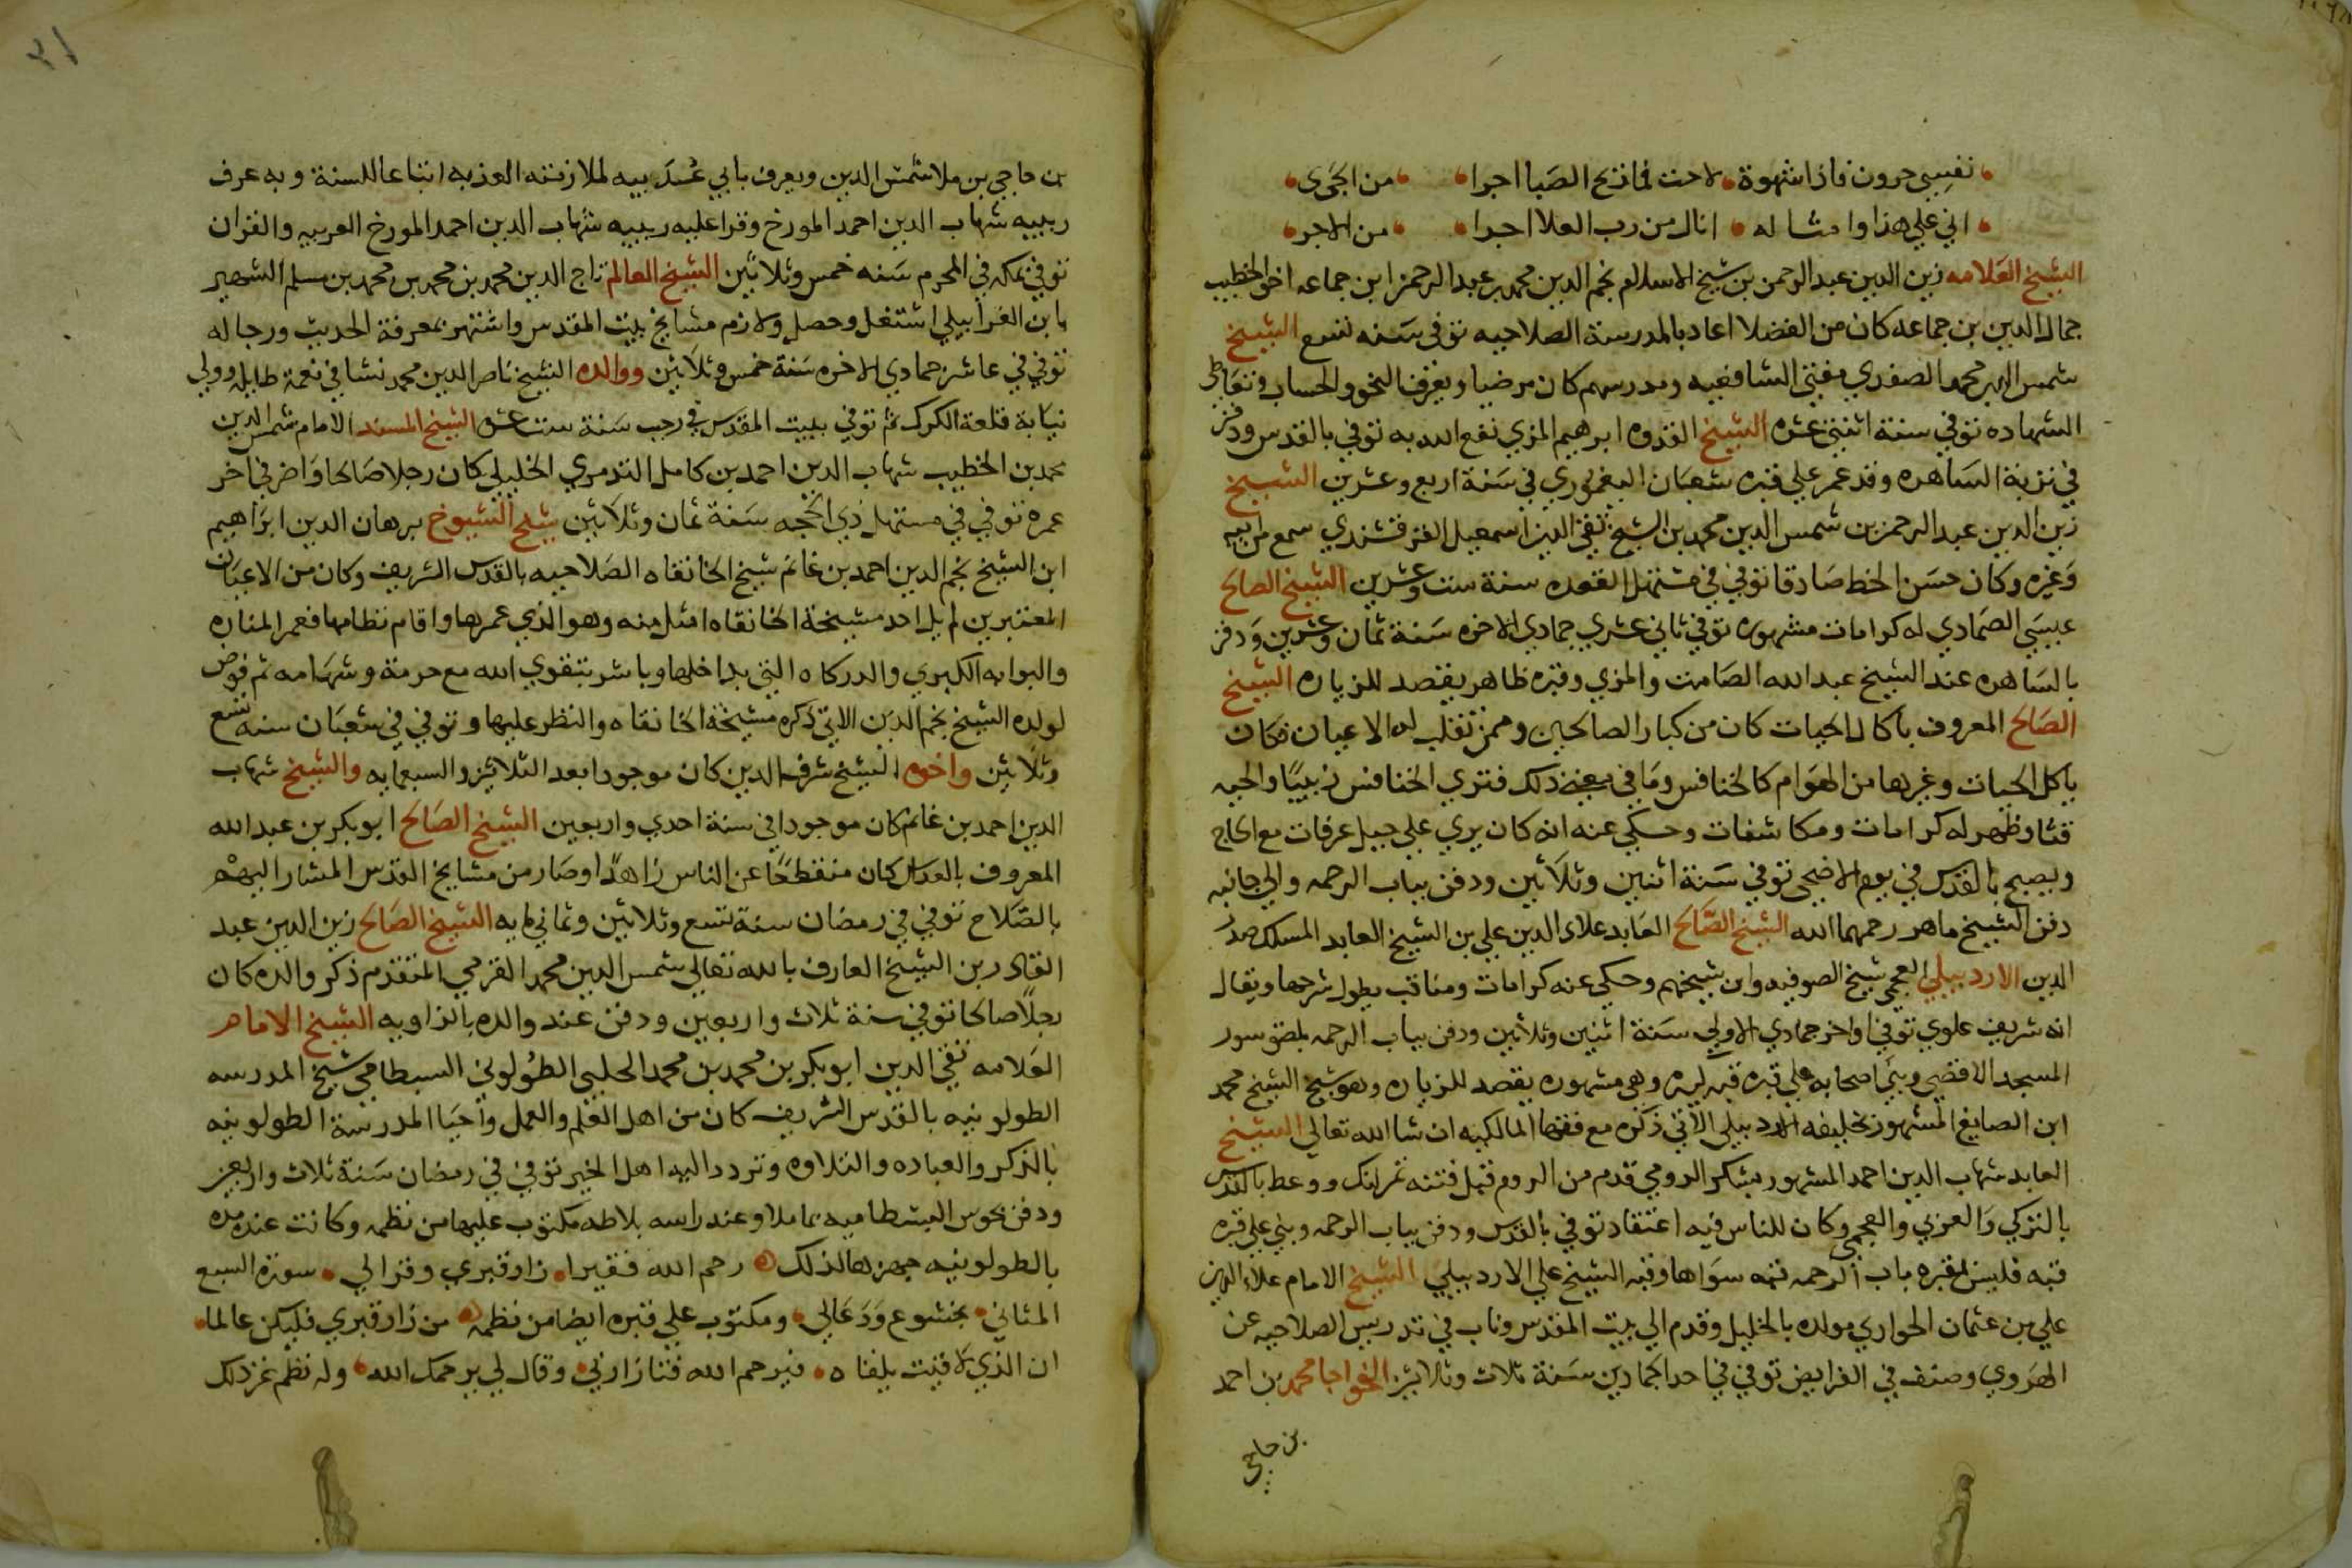 نفسي حرون فاذا شهوة لاحت فما تريح الصبا اجرا من الجرى
اني علي هذا وامثاله انال من رب العلا اجرا من الاجر
الشيخ العلامه زين الدين عبد الرحمن بن شيخ الاسلام نجم الدين محمد بن عبد الرحمن ابن جماعه اخو الخطيب
جمال الدين بن جماعه كان من الفضلا اعاد بالمدرسة الصلاحيه توفى سنه تسع الشيخ
شمس الدين محمد الصفدي مفتى الشافعيه ومدرسهم كان مرضيا ويعرف النحو والحساب وتعاطى
الشهاده توفي سنة اثنتى عشره الشيخ القدوه ابرهيم المزي نفع الله به توفي بالقدس ودفن
في تربة الساهره وقد عمر علي قبره شعبان اليغموري في سنة اربع وعشرين الشيخ
زين الدين عبد الرحمن بن شمس الدين محمد بن الشيخ تقي الدين اسمعيل القرقشندي سمع من ابيه
وغيره وكان حسن الخط صادقا توفي في مستهل القعده سنة ست وعشرين الشيخ الصالح
عيسى الصمادي له كرامات مشهوره توفي ثاني عشري جمادي الاخره سنة ثمان وعشرين ودفن
بالساهره عند الشيخ عبد الله الصامت والمزي وقبره ظاهر يقصد للزياره الشيخ
الصالح المعروف باكال الحيات كان من كبار الصالحين وممن تقلب له الاعيان فكان
ياكل الحيات وغيرها من الهوام كالخنافس وما في معنى ذلك فتري الخنافس زبيبا والحيه
قثا وظهر له كرامات ومكاشفات وحكي عنه انه كان يري علي جبل عرفات مع الحاج
ويصبح بالقدس في يوم الاضحى توفي سنة اثنين وثلاثين ودفن بباب الرحمه والي جانبه
دفن الشيخ ماهر رحمهما الله الشيخ الصالح العابد علاء الدين علي بن الشيخ العابد المسلك صدر
الدين الاردبيلي العجمي شيخ الصوفيه وابن شيخهم وحكي عنه كرامات ومناقب يطول شرحها ويقال
انه شريف علوي توفي اواخر جمادي الاولي سنة اثنين وثلاثين ودفن بباب الرحمه بلصق سور
المسجد الاقصي وبني اصحابه علي قبره قبه كبيره وهي مشهوره يقصد للزياره وهو شيخ الشيخ محمد
ابن الصايغ المشهور بخليفه الاردبيلي الآتي ذكره مع فقها المالكيه ان شا الله تعالي الشيخ
العابد شهاب الدين احمد المشهور بشكر الرومي قدم من الروم قبل فتنه تمرلنك ووعظ بالقدس
بالتركي والعربي والعجمي وكان للناس فيه اعتقاد توفي بالقدس ودفن بباب الرحمه وبني علي قبره
قبه فليس بمقبره باب الرحمه قبه سواها وقبه الشيخ علي الاردبيلي الشيخ الامام علاء الدين
علي بن عثمان الحواري مولده بالخليل وقدم الي بيت المقدس وناب في تدريس الصلاحيه عن
الهروي وصنف في الفرايض توفي في احد الجمادين سنة ثلاث وثلاثين الخواجا محمد بن احمد
بن حاجي
بن حاجي بن ملا شمس الدين ويعرف بابي عذبه لملازمته العذبه اتباعا للسنة وبه عرف
ربيبه شهاب الدين احمد المورخ وقرا عليه ربيبه شهاب الدين احمد المورخ العربيه والقران
توفي بمكه في المحرم سنه خمس وثلاثين الشيخ العالم تاج الدين محمد بن محمد بن محمد بن مسلم الشهير
بابن الغرابيلي اشتغل وحصل ولازم مشايخ بيت المقدس واشتهر بمعرفة الحديث ورجاله
توفي في عاشر جمادي الاخره سنة خمس وثلاثين ووالده الشيخ ناصر الدين محمد نشا في نعمة طايله وولي
نيابة قلعة الكرك ثم توفي ببيت المقدس في رجب سنة ست عشره الشيخ المسند الامام شمس الدين
محمد بن الخطيب شهاب الدين احمد بن كامل التدمري الخليلي كان رجلا صالحا واضر في اخر
عمره توفي في مستهل ذي الحجه سنة ثمان وثلاثين شيخ الشيوخ برهان الدين ابراهيم
ابن الشيخ نجم الدين احمد بن غانم شيخ الخانقاه الصلاحيه بالقدس الشريف وكان من الاعيان
المعتبرين لم يل احد مشيخة الخانقاه امثل منه وهو الذي عمرها واقام نظامها فعمر المناره
والبوابه الكبري والدركاه التي بداخلها وباشر بتقوي الله مع حرمة وشهامه ثم فوض
لولده الشيخ نجم الدين الاتي ذكره مشيخة الخانقاه والنظر عليها وتوفي في شعبان سنه تسع
وثلاثين واخوه الشيخ شرف الدين كان موجودا بعد الثلاثين والسبعمايه والشيخ شهاب
الدين احمد بن غانم كان موجودا في سنة احدي واربعين الشيخ الصالح ابو بكر بن عبد الله
المعروف كان منقطعا عن الناس زاهدا وصار من مشايخ القدس المشار اليهم
بالصلاح توفي في رمضان سنة تسع وثلاثين وثماني مايه الشيخ الصالح زين الدين عبد
القادر بن الشيخ العارف بالله تعالي شمس الدين محمد القرمي المتقدم ذكر والده كان
رجلا صالحا توفي سنة ثلاث واربعين ودفن عند والده بالزاويه الشيخ الامام
العلامه تقي الدين ابو بكر بن محمد بن محمد الحلبي الطولوني البسطامي شيخ المدرسه
الطولونيه بالقدس الشريف كان من اهل العلم والعمل واحيا المدرسة الطولونيه
بالذكر والعباده والتلاوه وتردد اليه اهل الخير توفي في رمضان سنة ثلاث واربعين
ودفن بحوش البسطاميه بماملا وعند راسه بلاطه مكتوب عليها من نظمه وكانت عنده مده
بالطولونيه جهزها لذلك رحم الله فقيرا زار قبري وقرا لي سورة السبع
المثاني بخشوع ودعا لي ومكتوب علي قبره ايضا من نظمه من زار قبري فليكن عالما
ان الذي لاقيت يلقاه فيرحم الله فتا زارني وقال لي يرحمك الله وله نظم غير ذلك